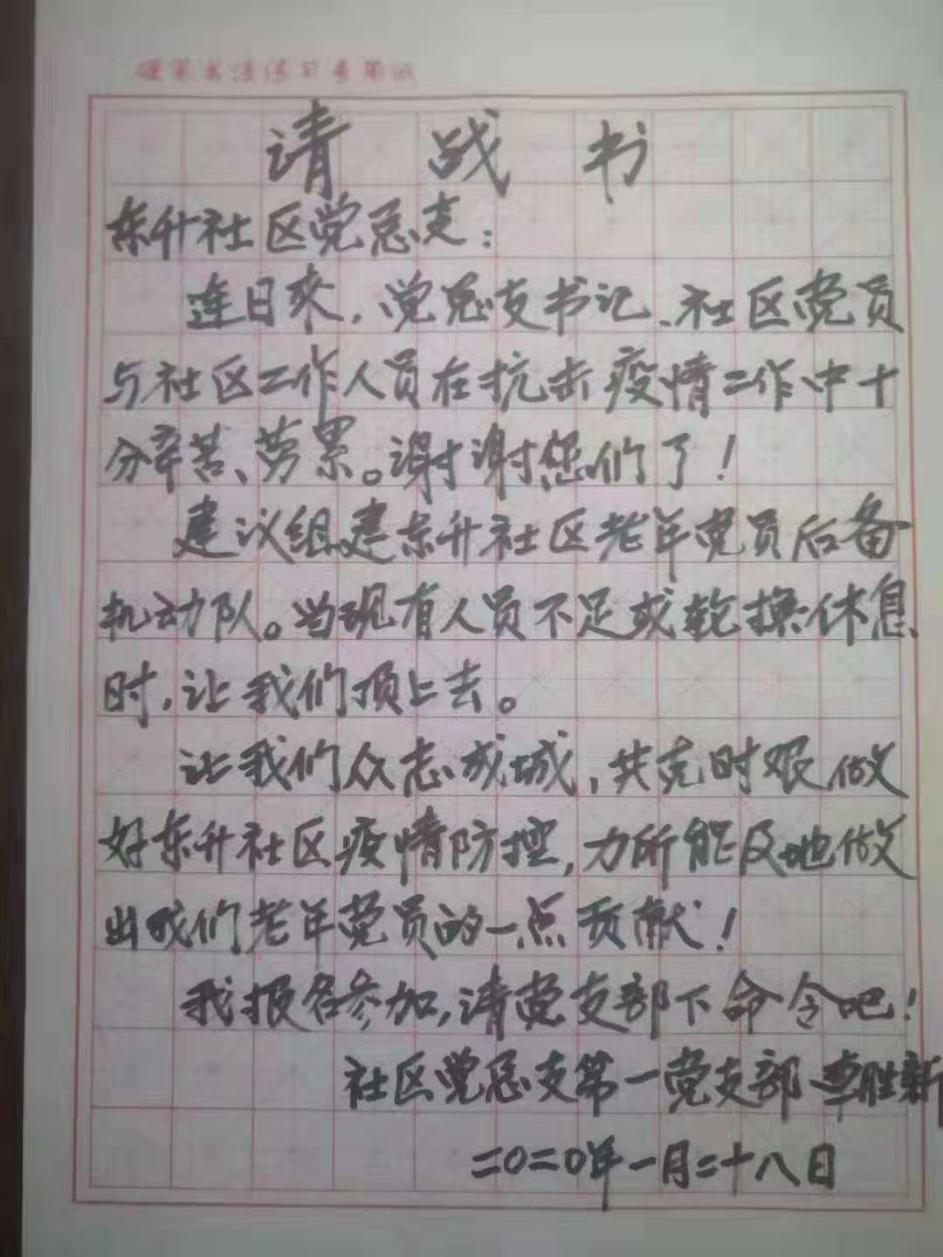 硬笔书法练习专用纸
请战书
东升社区党总支：
连日来，党总支书记、社区党员
与社区工作人员在抗击疫情工作中十
分辛苦、劳累。谢谢您们了！
建议组建东升社区老年党员后备
机动队。当现有人员不足或轮换休息
时，让我们顶上去。
让我们众志成城，共克时艰做
好东升社区疫情防控，力所能及地做
出我们老年党员的一点贡献！
我报名参加，请党支部下命令吧！
社区党总支第一党支部 胜新
二〇二〇年一月二十八日